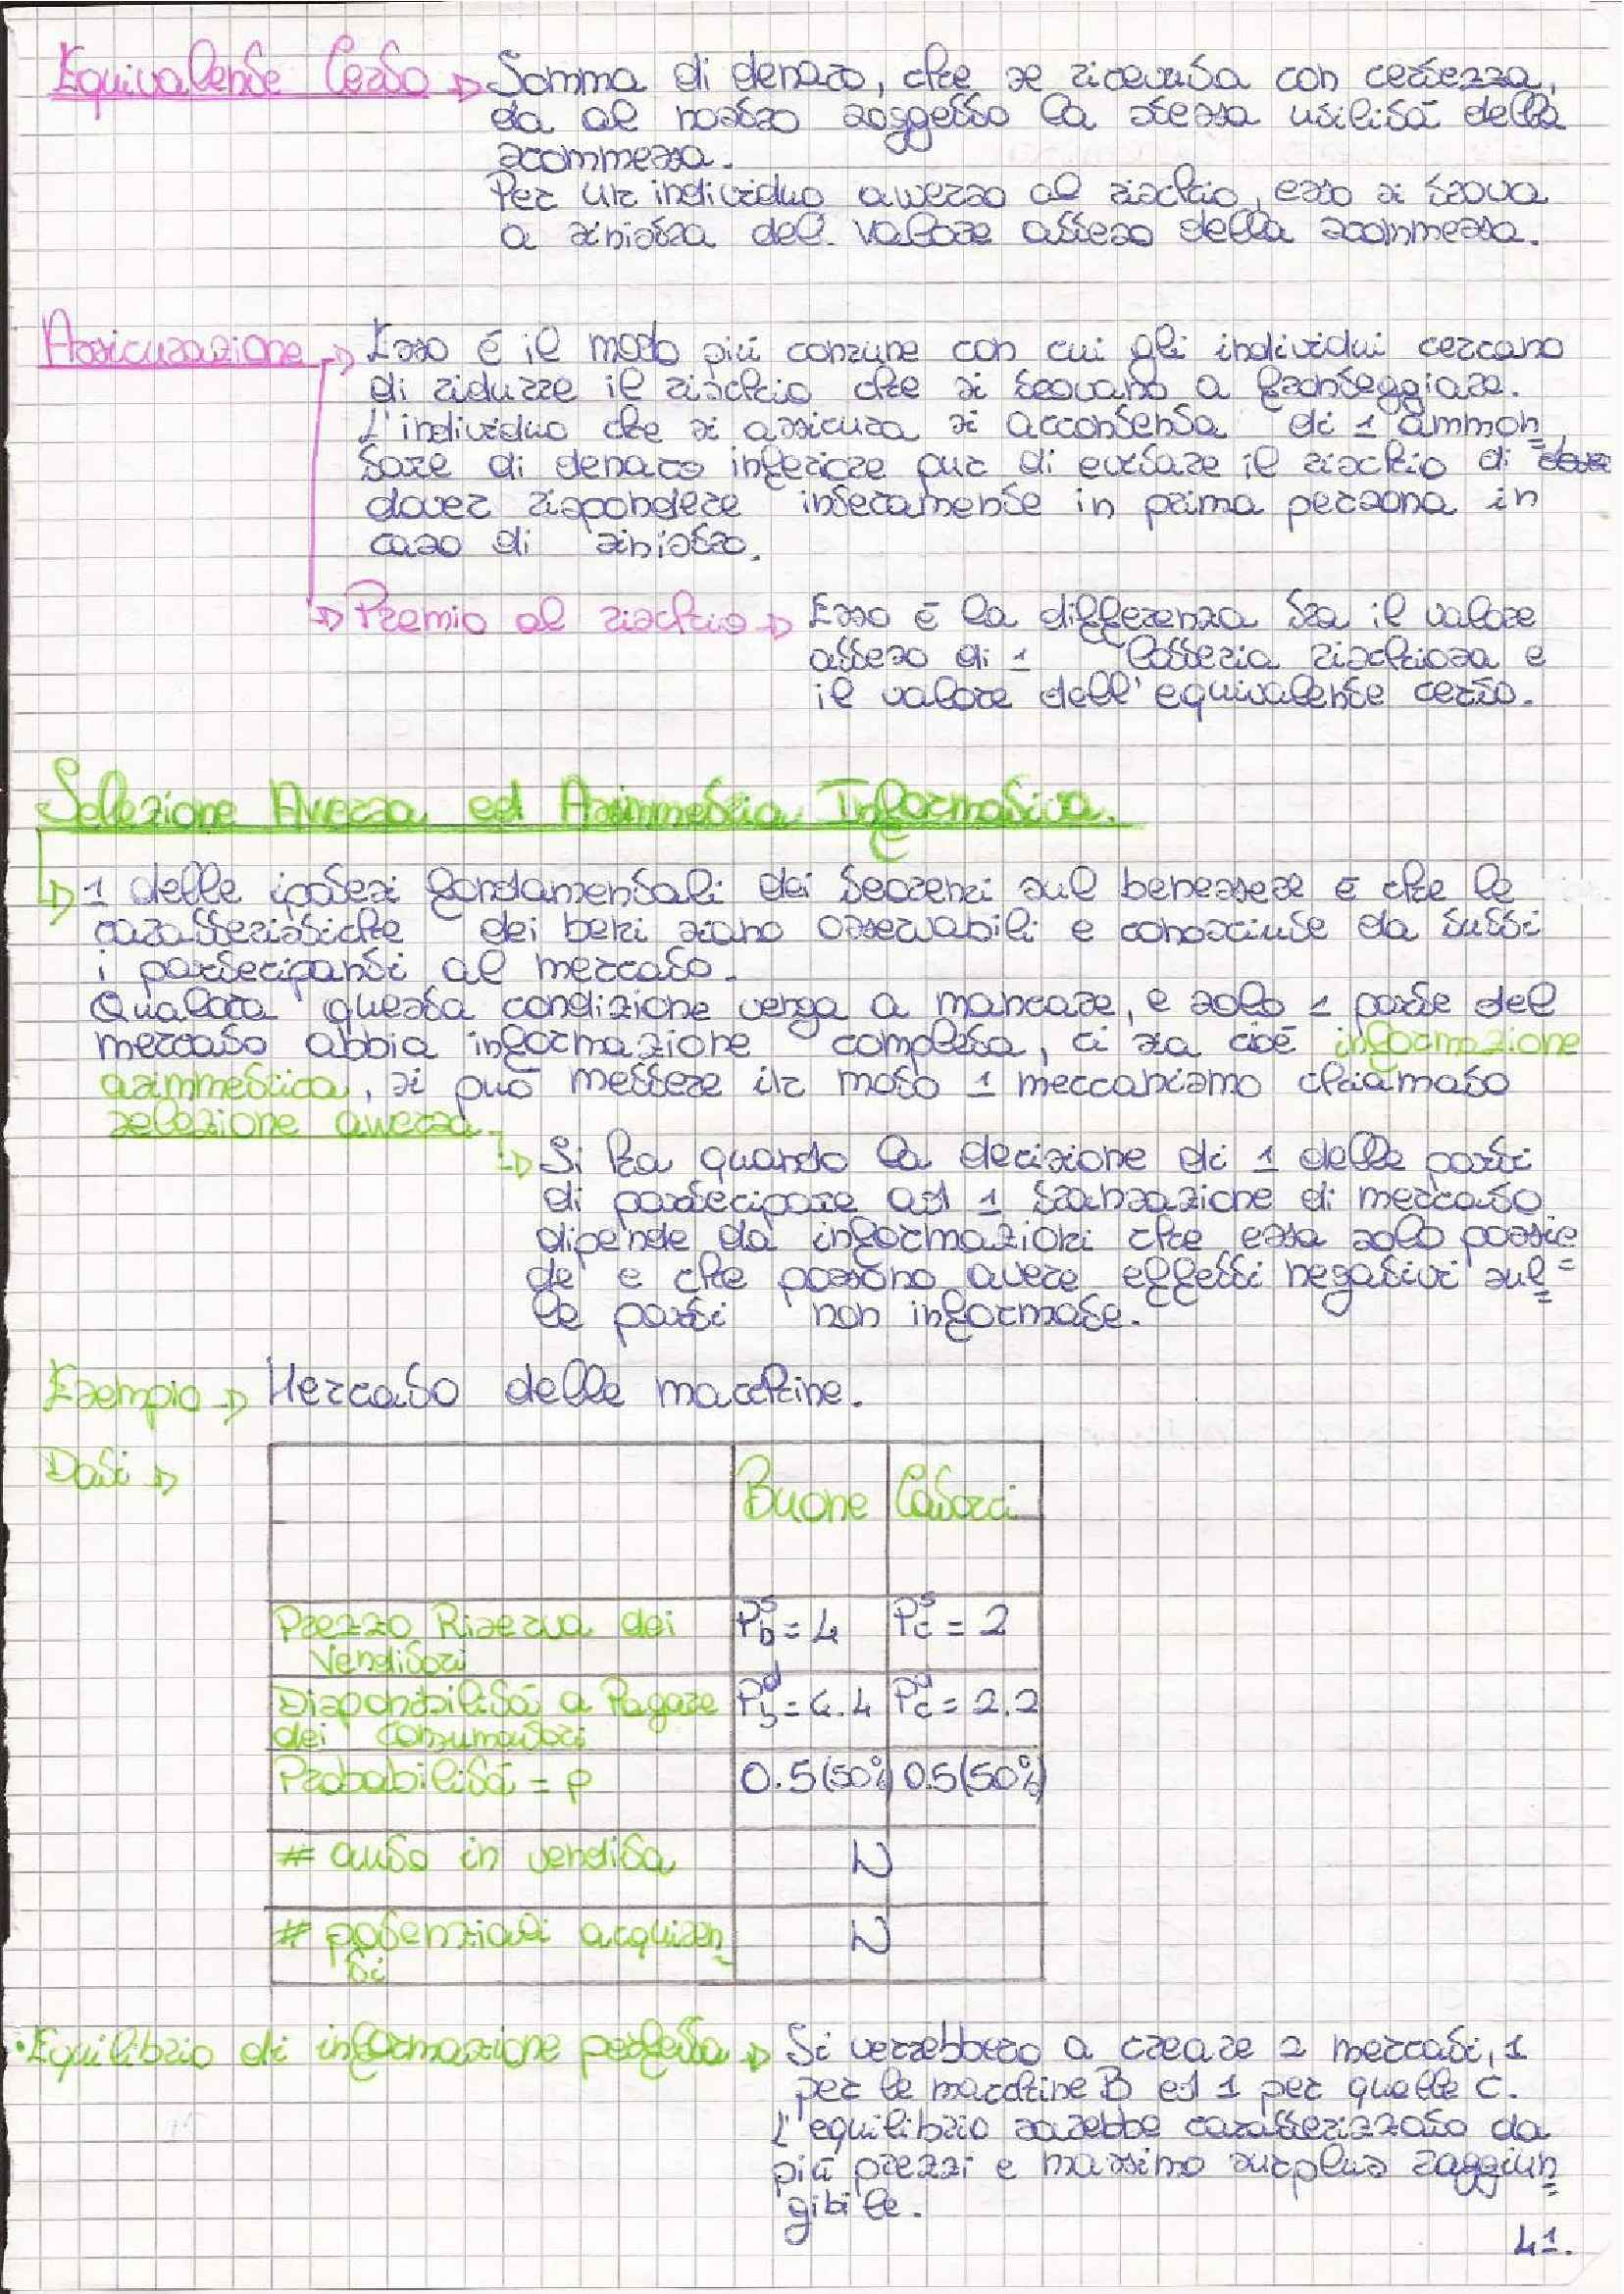 Equivalente Certo → Somma di denaro, che se ricevuta con certezza,
da al nostro soggetto la stessa utilitá della
scommessa.
Per un individuo avverso al rischio, esso si trova
a sinistra del valore atteso della scommessa.
Assicurazione → Esso é il modo piú comune con cui gli individui cercano
di ridurre il rischio che si trovano a fronteggiare.
L'individuo che si assicura si accontenta di 1 ammon=
tare di denaro inferiore pur di evitare il rischio di
dover rispondere interamente in prima persona in
caso di sinistro.
→ Premio al rischio → Esso é la differenza tra il valore
atteso di 1 lotteria rischiosa e
il valore dell'equivalente certo.
Selezione Aversa ed Asimmetria Informativa.
→ 1 delle ipotesi fondamentali dei teoremi sul benessere é che le
caratteristiche dei beni siano osservabili e conosciute da tutti
i partecipanti al mercato.
Qualora questa condizione venga a mancare, e solo 1 parte del
mercato abbia informazione completa, ci sia cioé informazione
asimmetrica, si puó mettere in moto 1 meccanismo chiamato
selezione avversa.
→ Si ha quando la decisione di 1 delle parti
di partecipare ad 1 transazione di mercato
dipende da informazioni che essa solo possie
de e che possono avere effetti negativi sul=
le parti non informate.
Esempio → Mercato delle macchine.
Dati →
Buone Catorci
Prezzo Riserva dei Venditori P_b^s = 4 P_c^s = 2
Disponibilitá a Pagare dei Consumatori P_b^d = 4.4 P_c^d = 2.2
Probabilitá = p 0.5 (50%) 0.5 (50%)
# auto in vendita N
# potenziali acquiren=
ti N
• Equilibrio di informazione perfetta → Si verrebbero a creare 2 mercati, 1
per le macchine B ed 1 per quelle C.
L'equilibrio sarebbe caratterizzato da
piú prezzi e massimo surplus raggiun=
gibile.
41.